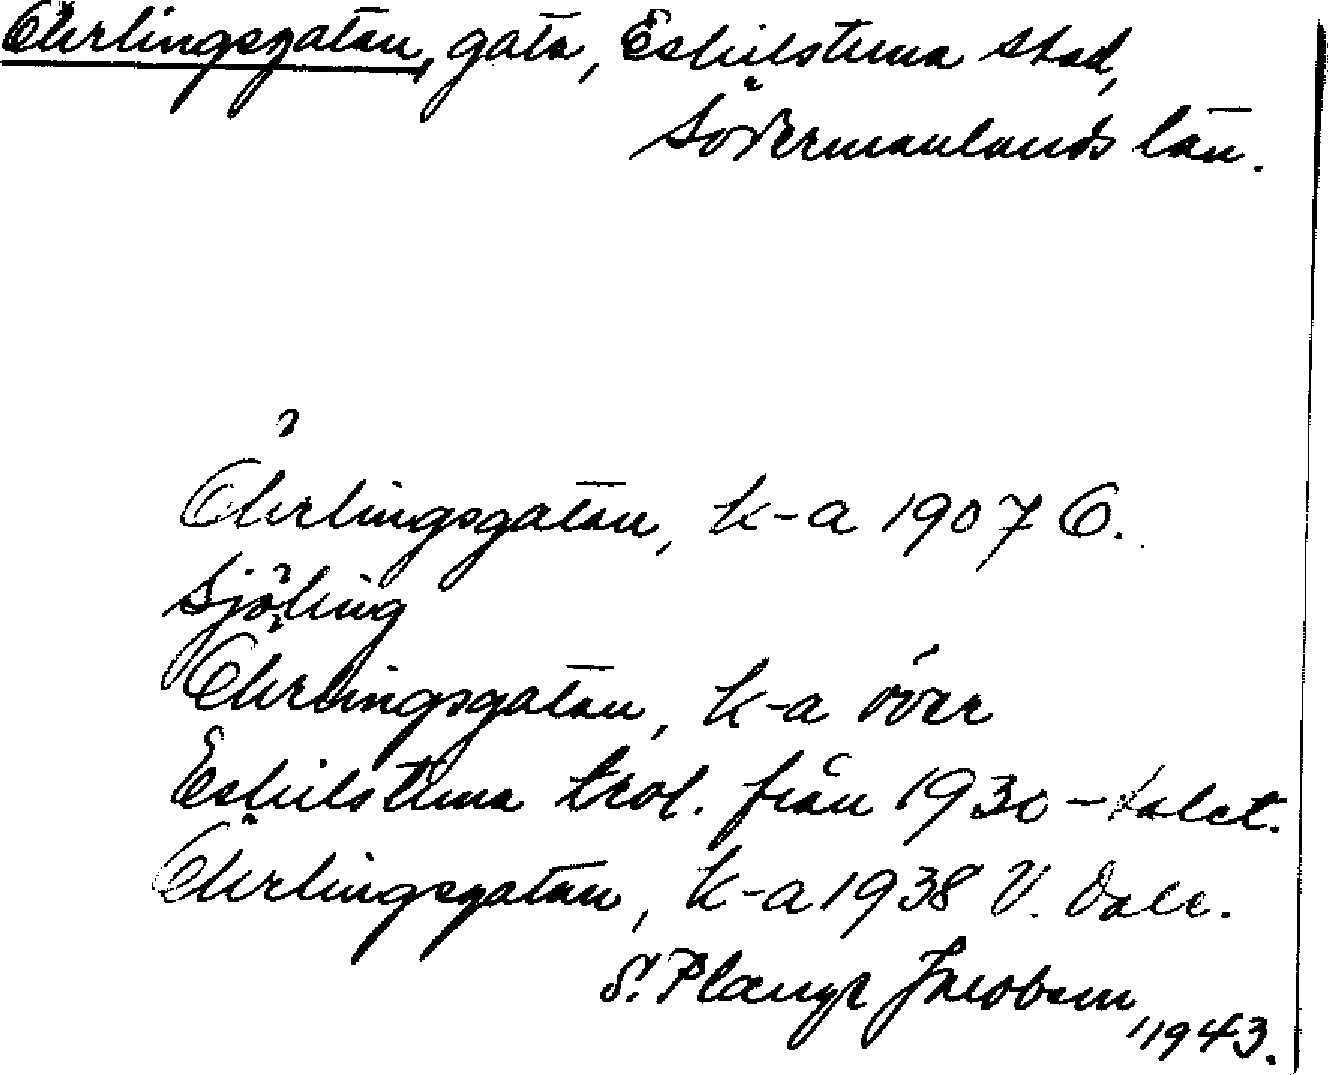 Öhrlingsgatan, gata, Eskilstuna stad,
Södermanlands län.
Öhrlingsgatan, k-a 1907 O.
Sjöling
Öhrlingsgatan, k-a över
Eskilstuna trol. från 1930-talet.
Öhrlingsgatan, k-a 1938 V.
S. Jacobson 1943.